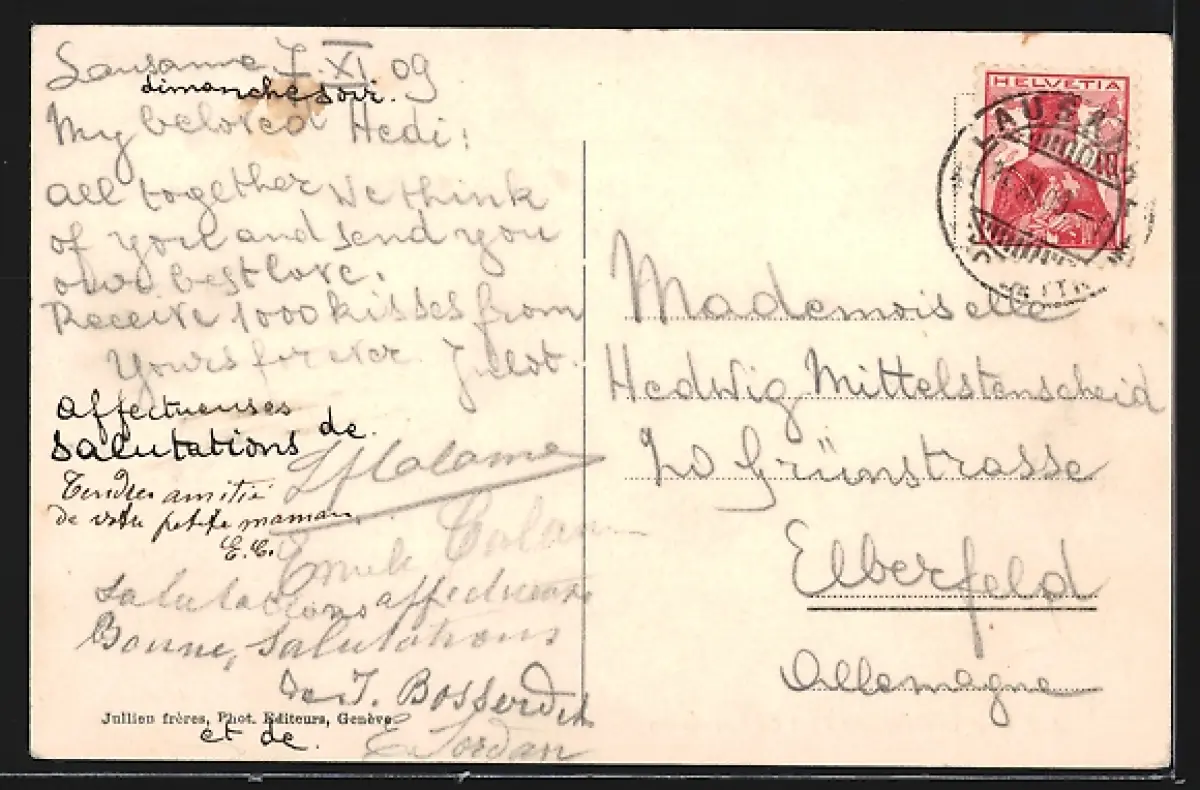 Lausanne 7 XI 09
dimanche soir.
My beloved Hedi:
all together we think
of you and send you
our best love.
Receive 1000 kisses from
Yours for ever
Affectueuses
salutations de
Tendres amitié
de votre petite maman
E. C.
Emile
salutations affectueuses
Bonne, salutations
de J.
Jullien frères, Phot. Editeurs, Genève
et de
E. Jordan
HELVETIA
Mademoiselle
Hedwig Mittelstenscheid
Grünstrasse
Elberfeld
Allemagne